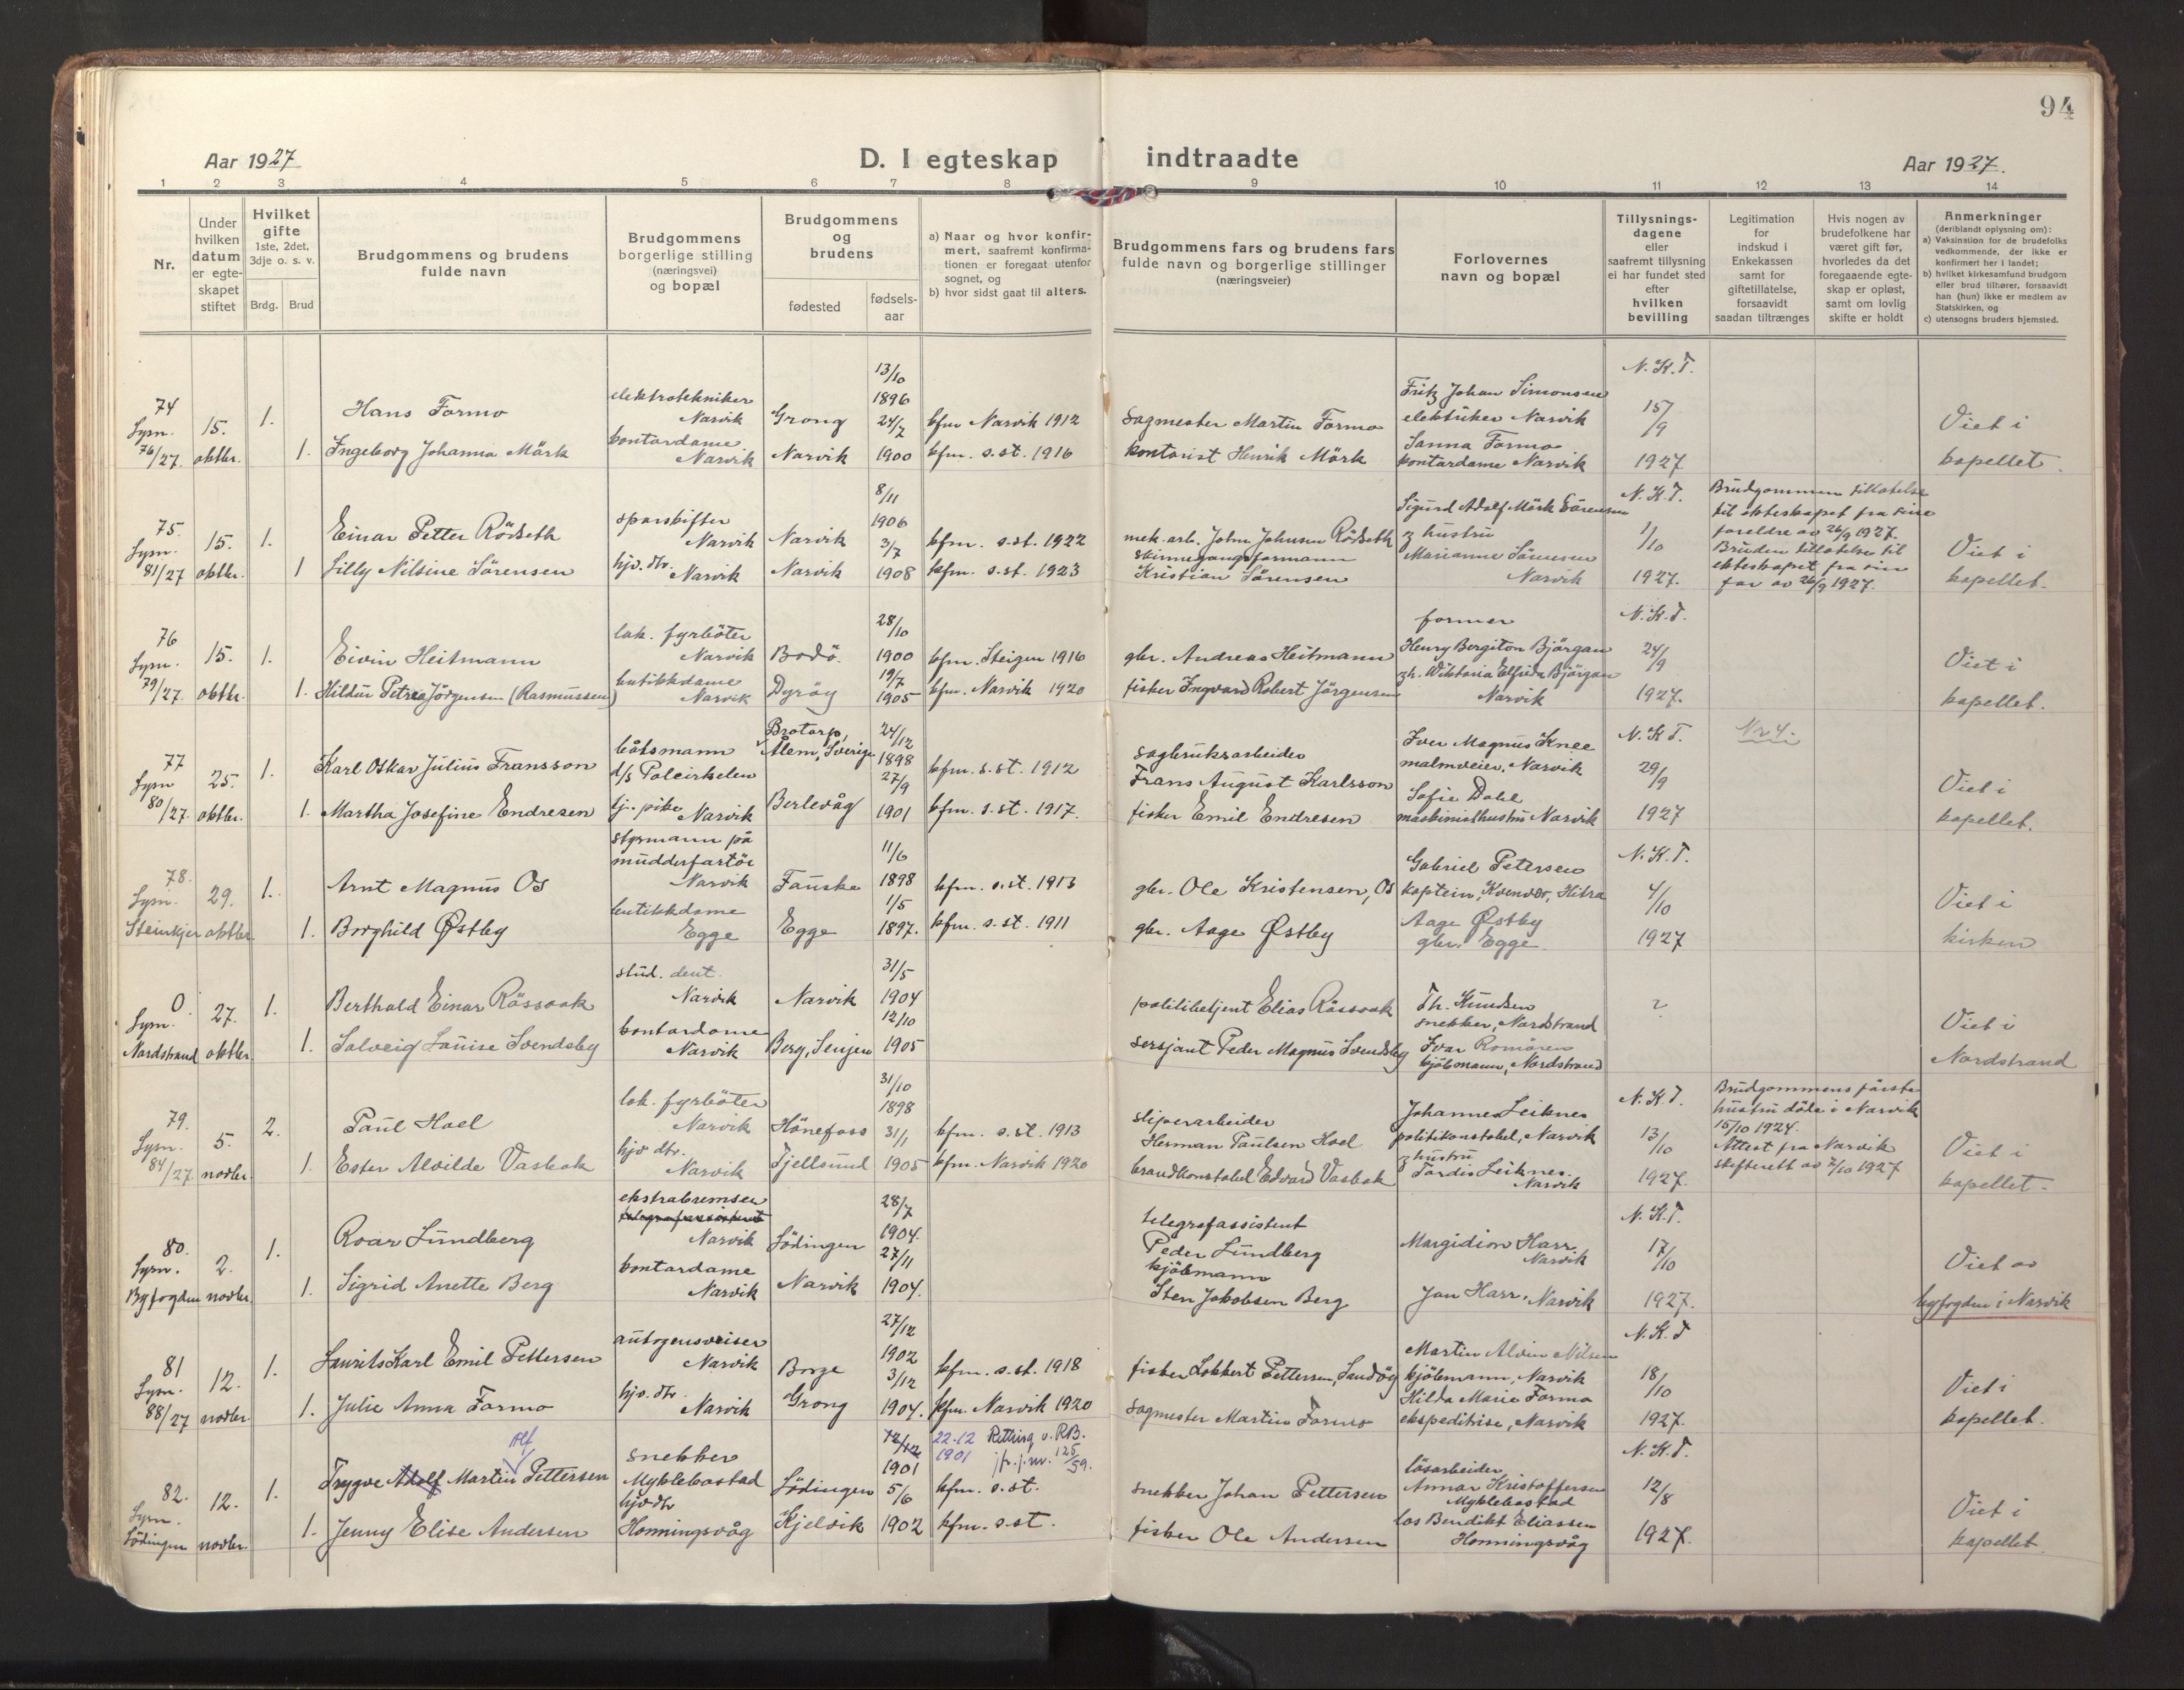 94
Aar 1927
D. I egteskap indtraadte
Aar 1927.
1 2 3 4 5 6 7 8 9 10 11 12 13 14
Nr.
Under hvilken datum er egteskapet stiftet
Hvilket gifte 1ste, 2det, 3dje o. s. v.
Brdg. Brud
Brudgommens og brudens fulde navn
Brudgommens borgerlige stilling (næringsvei) og bopæl
Brudgommens og brudens
fødested
fødselsaar
a) Naar og hvor konfirmert, saafremt konfirmationen er foregaat utenfor sognet, og
b) hvor sidst gaat til alters.
Brudgommens fars og brudens fars fulde navn og borgerlige stillinger (næringsveier)
Forlovernes navn og bopæl
Tillysningsdagene eller saafremt tillysning ei har fundet sted efter hvilken bevilling
Legitimation for indskud i Enkekassen samt for giftetillatelse, forsaavidt saadan tiltrænges
Hvis nogen av brudefolkene har været gift før, hvorledes da det foregaaende egteskap er opløst, samt om lovlig skifte er holdt
Anmerkninger (deriblandt oplysning om):
a) Vaksination for de brudefolks vedkommende, der ikke er konfirmert her i landet;
b) hvilket kirkesamfund brudgom eller brud tilhører, forsaavidt han (hun) ikke er medlem av Statskirken, og
c) utensogns bruders hjemsted.
74 Lysn. 76/27. 15. oktbr.
1. Hans Formo elektrotekniker Narvik Grong 13/10 1896 kfm Narvik 1912
1. Ingeborg Johanna Mörk kontordame Narvik Narvik 24/7 1900 kfm. s.st. 1916
sagmester Martin Formo
kontorist Henrik Mörk
Fritz Johan Simonsen elektriker Narvik
Sanna Formo kontordame Narvik
N. K. T. 15/9 1927
Viet i kapellet.
75. Lysn. 81/27 15. oktbr.
1. Einar Petter Rödseth sporskifter Narvik Narvik 8/11 1906 kfm. s.st. 1922
1 Lilly Nilsine Sörensen hjv. dtr. Narvik Narvik 3/7 1908 kfm. s.st. 1923
mek. arb. John Johnsen Rödseth
skinnegangsformann Kristian Sörensen
Sigurd Adolf Mörk Sörensen
g hustru Marianne Sörensen Narvik
N. K. T. 1/10 1927.
Brudgommen tillatelse til ekteskapet fra sine foreldre av 26/9 1927.
Bruden tillatelse til ekteskapet fra sin far av 26/9 1927.
Viet i kapellet.
76 Lysn. 79/27. 15. oktbr.
1. Eivin Heitmann lok. fyrböter Narvik Bodö 28/10 1900 kfm. Steigen 1916
1. Hildur Petrea Jörgensen (Rasmussen) butikkdame Narvik Dyröy 19/7 1905 kfm. Narvik 1920
gbr. Andreas Heitmann
fisker Ingvard Robert Jörgensen
former Henry Bergiton Björgan
g h. Wiktoria Elfrida Björgan Narvik
N. K. T. 24/9 1927.
Viet i kapellet.
77 Lysn 80/27. 25. oktbr.
1. Karl Oskar Julius Fransson båtsmann d/s Polcirkelen Brotorp, Ålem, Sverige 24/12 1898 kfm. s.st. 1912
1. Martha Josefine Endresen tj. pike Narvik Berlevåg 27/9 1901 kfm. s.st. 1917.
sagbruksarbeider Frans August Karlsson
fisker Emil Endresen
Iver Magnus Knee malmveier, Narvik
Sofie Dahl maskinisthustru Narvik
N. K. T. 29/9 1927
Nr 4.
Viet i kapellet.
78. Lysn. Steinkjer 29. oktbr.
1. Arnt Magnus Os styrmann på mudderfartöi Narvik Fauske 11/6 1898 kfm. s.st. 1913
1. Borghild Østby butikkdame Egge Egge 1/5 1897. kfm. s.st. 1911
gbr. Ole Kristensen, Os
gbr. Aage Østby
Gabriel Petersen kaptein, Kvenvær, Hitra
Aage Østby gbr. Egge.
N. K. T. 4/10 1927
Viet i kirken
0 Lysn. Nordstrand 27. oktbr.
1. Berthold Einar Rössvok stud. dent. Narvik Narvik 31/5 1904
1. Solveig Louise Svendsby kontordame Narvik Berg, Senjen 12/10 1905
politibetjent Elias Rössvok
sersjant Peder Magnus Svendsby
Th. Knudsen snekker, Nordstrand
Ivar Romören kjöbmann, Nordstrand
?
Viet i Nordstrand
79. Lysn. 84/27 5. novbr.
2. Paul Hoel lok. fyrböter Narvik Hönefoss 31/10 1898 kfm. s.st. 1913
1. Ester Alvilde Vasbok hjv dtr. Narvik Tjellsund 31/1 1905 kfm. Narvik 1920
sliperarbeider Herman Paulsen Hoel
brandkonstabel Edvard Vasbok
Johannes Leiknes politikonstabel, Narvik
g hustru Tordis Leiknes. Narvik
N. K. T. 13/10 1927.
Brudgommens förste hustru döde i Narvik 15/10 1924.
Attest fra Narvik skifterett av 7/10 1927
Viet i kapellet.
80. Lysn. Byfogden 2. novbr.
1. Roar Lundberg ekstrabremser telegrafassistent Narvik Lödingen 28/7 1904.
1. Sigrid Anette Berg kontordame Narvik Narvik 27/11 1904.
telegrafassistent Peder Lundberg
kjöbmann Sten Jakobsen Berg
Margidion Harr. Narvik
Jan Harr, Narvik
N. K. T. 17/10 1927.
Viet av byfogden i Narvik
81 Lysn. 88/27 12. novbr.
1. Laurits Karl Emil Pettersen autogensveiser Narvik Borge 27/12 1902 kfm. s.st. 1918
1. Julie Anna Formo hjv. dtr. Narvik Grong 3/12 1904. kfm. Narvik 1920
fisker Lokkert Pettersen, Sandöy
sagmester Martin Formo
Martin Alvin Nilsen kjöbmann, Narvik
Hilda Marie Formo ekspeditrise, Narvik
N. K. T 18/10 1927.
Viet i kapellet.
82. Lysn. Lödingen 12. novbr.
1. Trygve Adolf Alf Martin Pettersen snekker Myklebostad Lödingen 12/12 1901 kfm. s.st.
22-12 1901 Retting v. RB. jfr. j.nr. 125/59.
1. Jenny Elise Andersen hjv dtr Honningsvåg Kjelvik 5/6 1902 kfm. s.st.
snekker Johan Pettersen
fisker Ole Andersen
lösarbeider Annar Kristoffersen Myklebostad
los Bendikt Eliassen Honningsvåg
N. K. T. 12/8 1927.
Viet i kapellet.